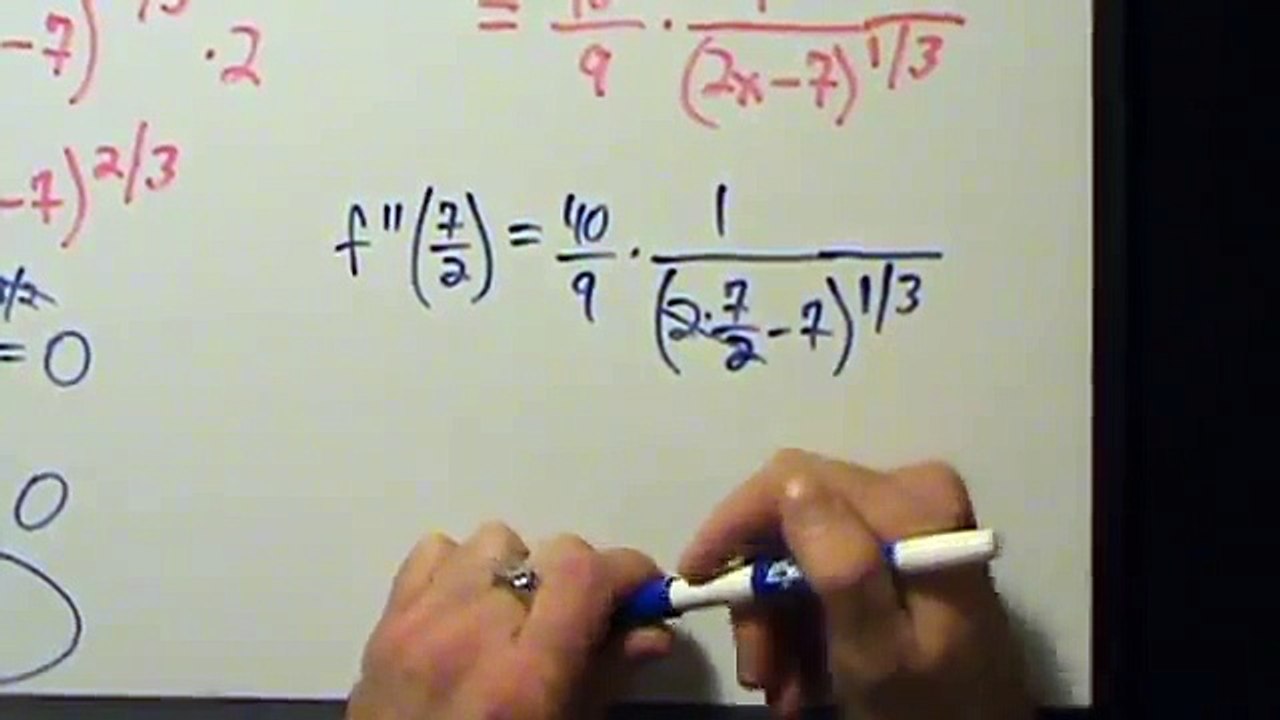 -7) · 2
= /9 · /(2x-7)^1/3
-7)^2/3
f''(7/2) = 40/9 · 1/(2·7/2-7)^1/3
= 0
0